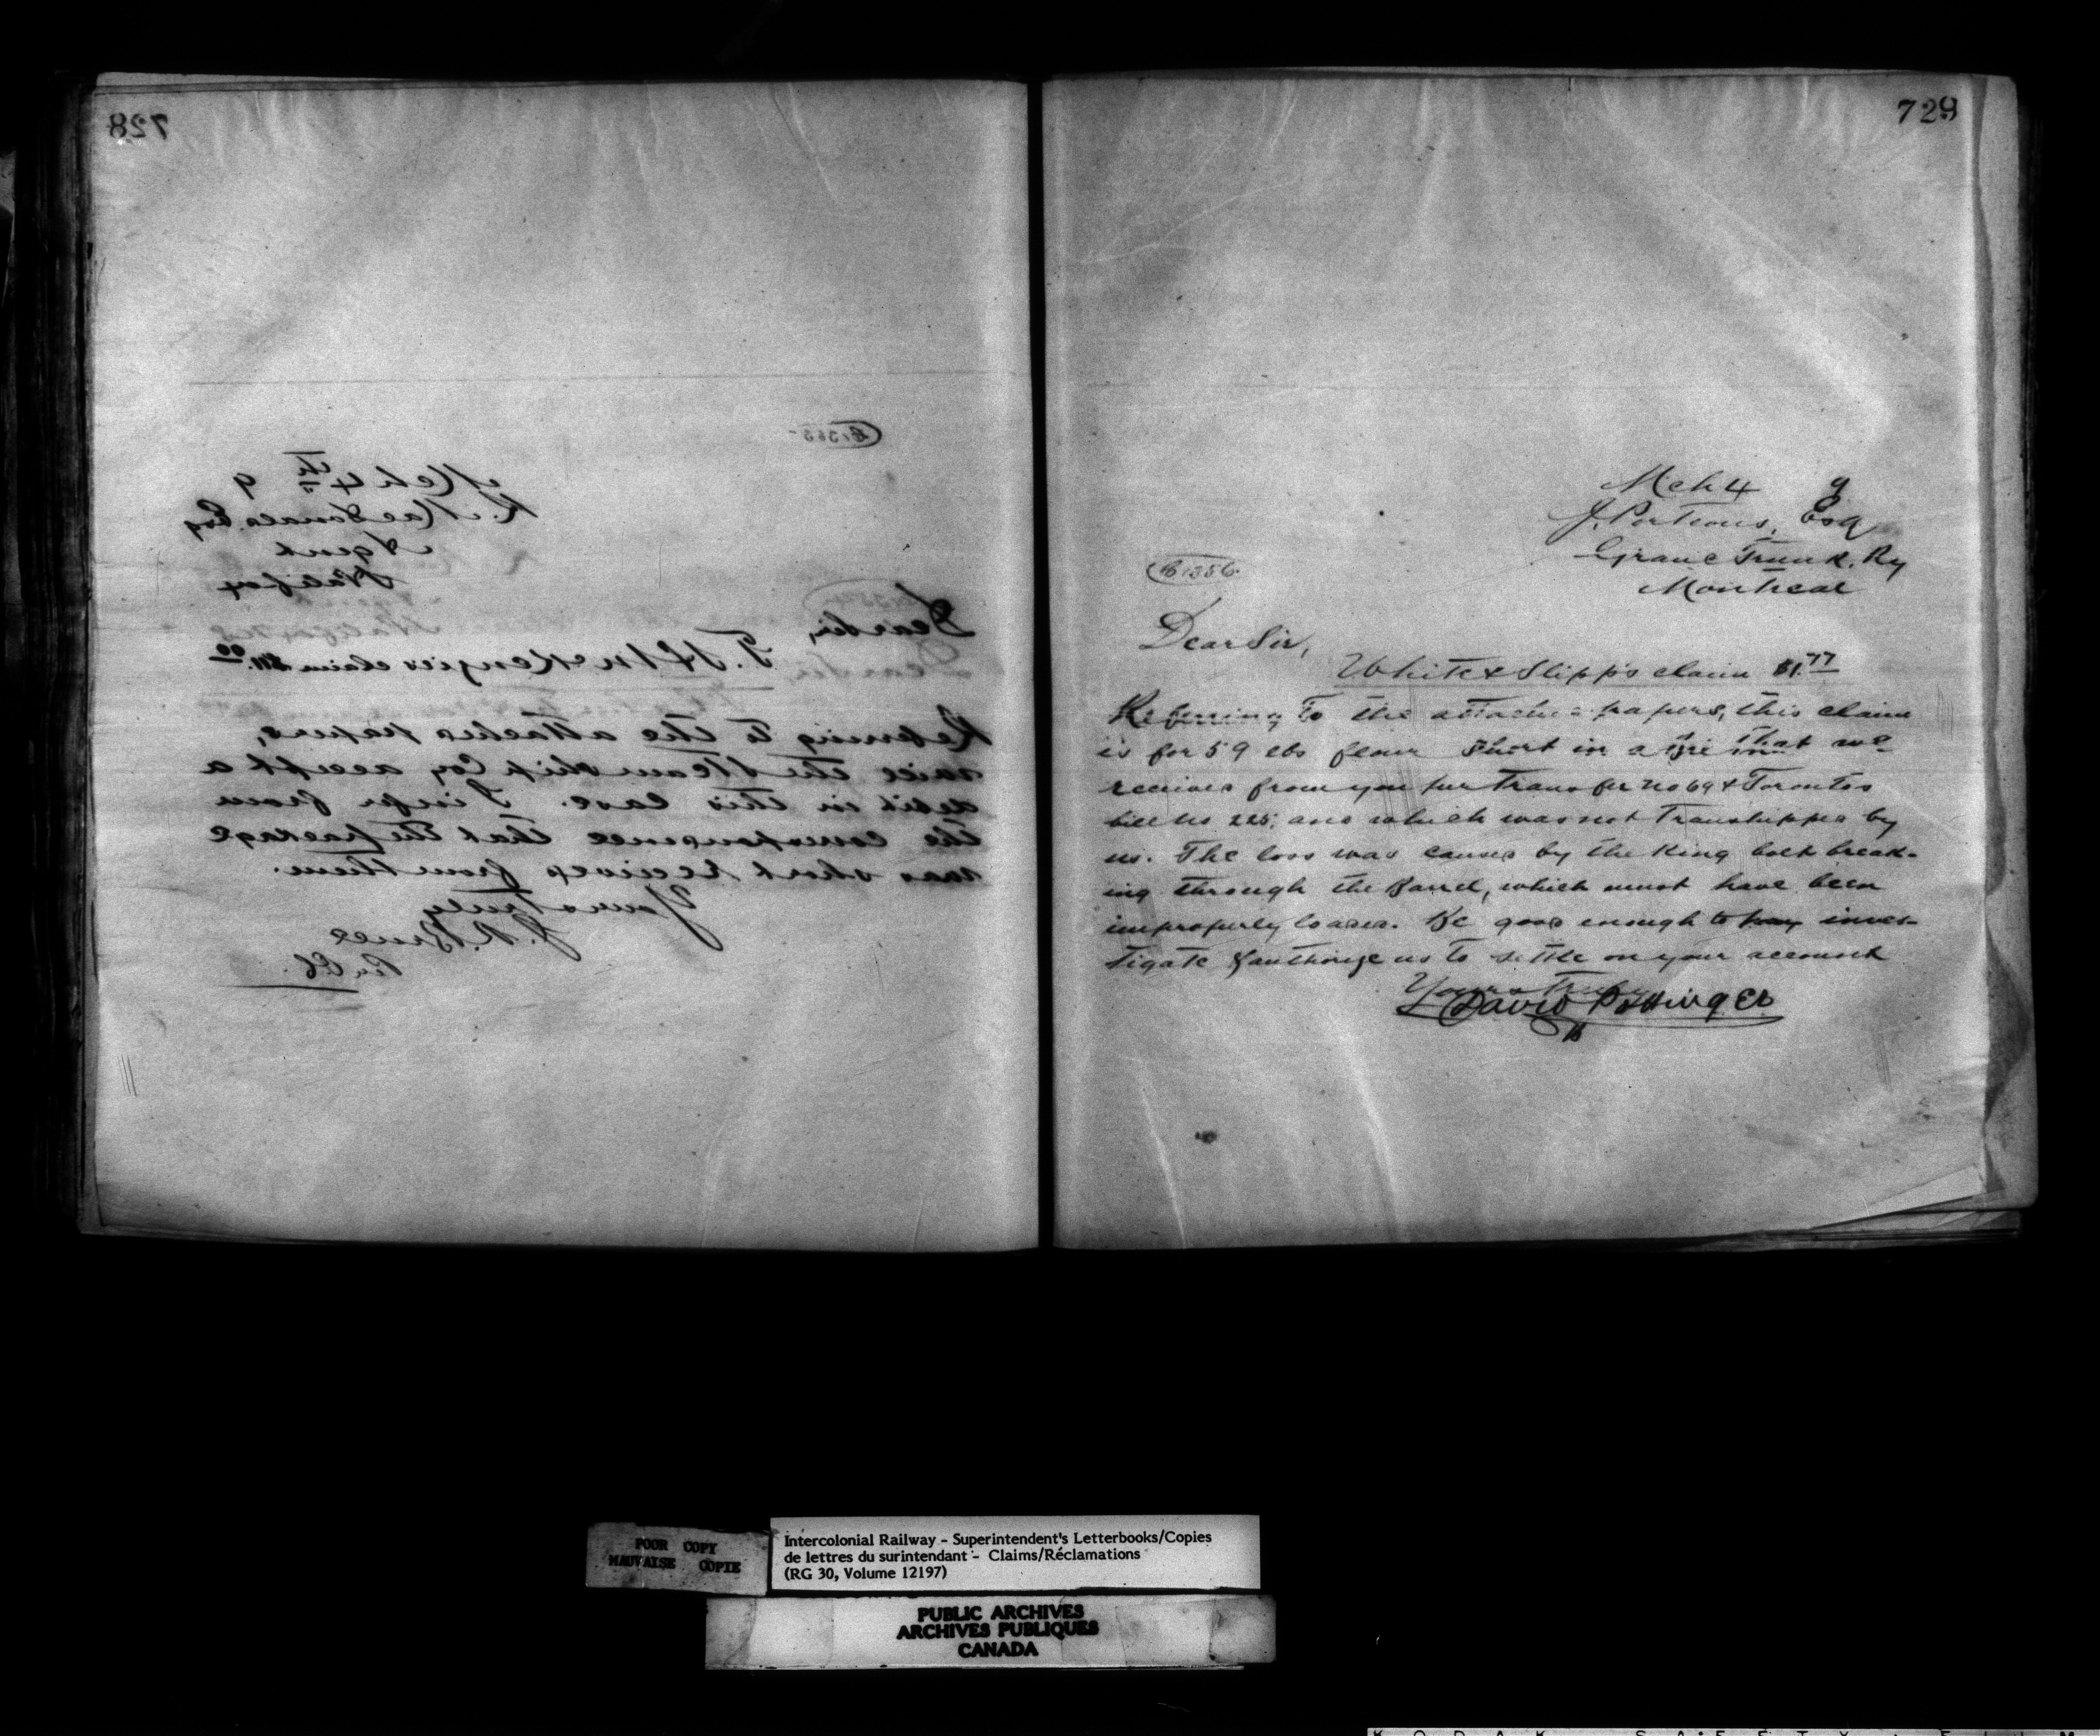 728
C1365
Mch 4th 9
K. MacDonald Esq
Agent
Halifax
Dear Sir,
T. H. McKenzie's claim $11.00
Referring to the attached papers,
will the Steamship Coy accept a
debit in this case. I infer from
the correspondence that the package
was short received from them.
Yours truly
J. R. Bruce
Per
729
Mch 4 9
J. Porteous, Esq
Grand Trunk. Ry
Montreal
C1356
Dear Sir,
White & Slipp's claim $1.77
Referring to the attached papers, this claim
is for 59 lbs flour short in a that we
received from you per transfer no 69 & Toronto
bill no 225, and which was not transhipped by
us. The loss was caused by the King bolt break-
ing through the barrel, which must have been
improperly loaded. Be good enough to pay inves-
tigate & authorize us to settle on your account
Yours truly
David Pottinger
POOR COPY
MAUVAISE COPIE
Intercolonial Railway - Superintendent's Letterbooks/Copies
de lettres du surintendant - Claims/Réclamations
(RG 30, Volume 12197)
PUBLIC ARCHIVES
ARCHIVES PUBLIQUES
CANADA